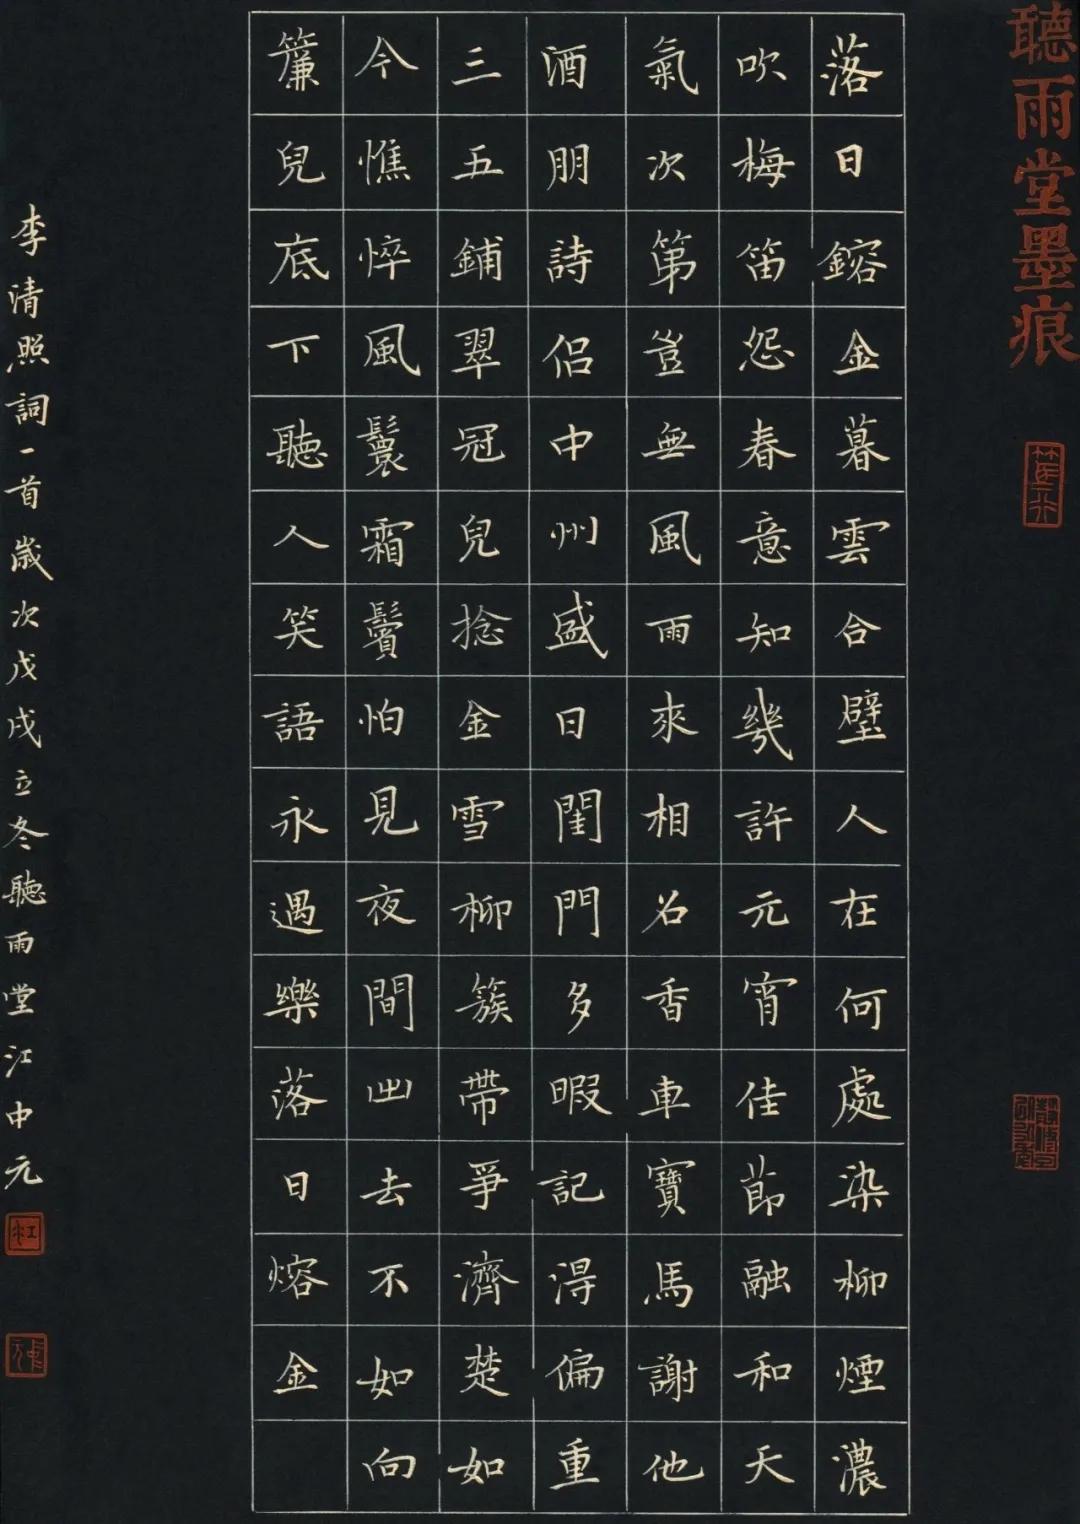 聽雨堂墨痕
落日鎔金暮雲合璧人在何處染柳煙濃
吹梅笛怨春意知幾許元宵佳節融和天
氣次第豈無風雨來相召香車寶馬謝他
酒朋詩侶中州盛日閨門多暇記得偏重
三五鋪翠冠兒捻金雪柳簇帶爭濟楚如
今憔悴風鬟霜鬢怕見夜間出去不如向
簾兒底下聽人笑語永遇樂落日熔金
李清照詞一首歲次戊戌立冬聽雨堂江中元